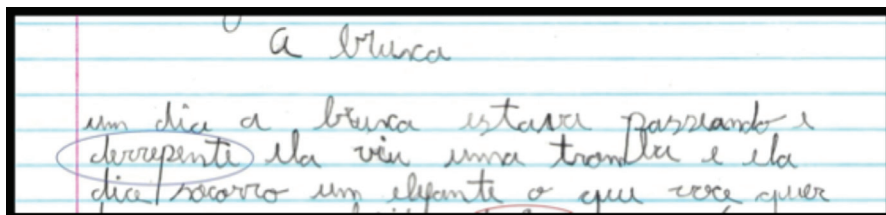 a bruxa
um dia a bruxa estava passeando e
derrepente ela viu uma tromba e ela
dice socorro um elefante o que voce quer